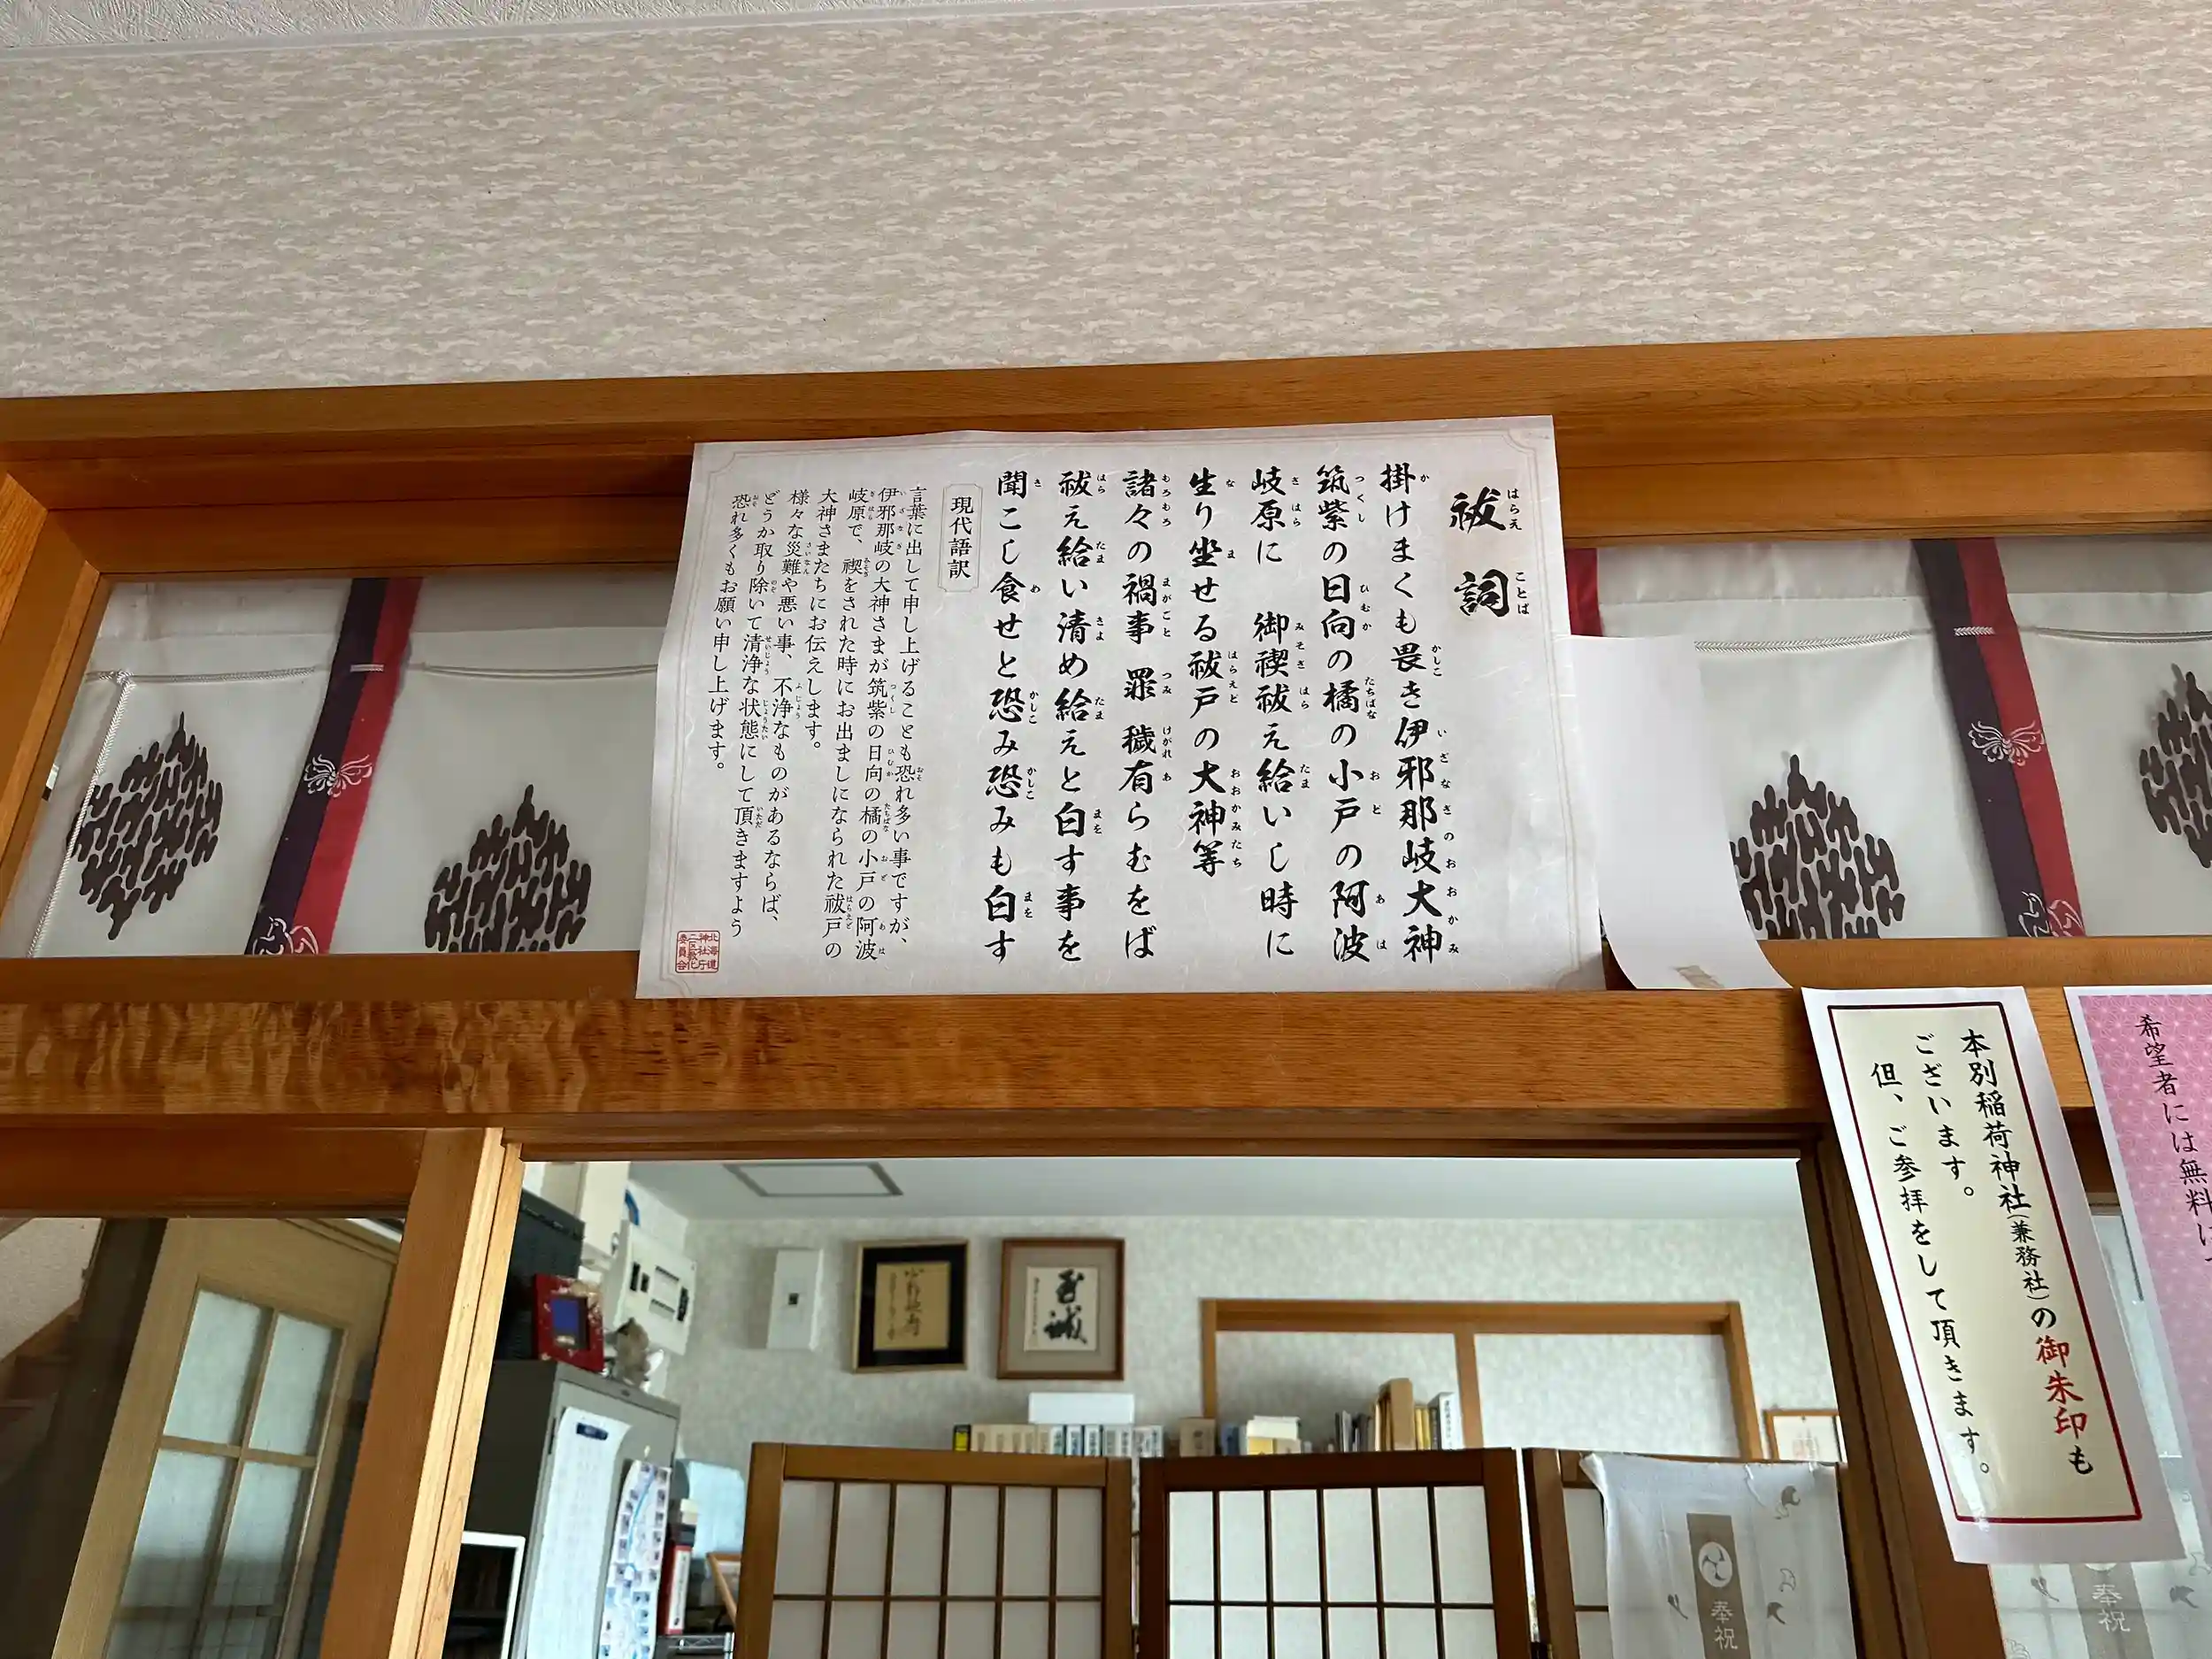 祓詞
掛けまくも畏き伊邪那岐大神
筑紫の日向の橘の小戸の阿波
岐原に 御禊祓え給いし時に
生り坐せる祓戸の大神等
諸々の禍事 罪 穢有らむをば
祓え給い清め給えと白す事を
聞こし食せと恐み恐みも白す
現代語訳
言葉に出して申し上げることも恐れ多い事ですが、
伊邪那岐の大神さまが筑紫の日向の橘の小戸の阿波
岐原で、禊をされた時にお出ましになられた祓戸の
大神さまたちにお伝えします。
様々な災難や悪い事、不浄なものがあるならば、
どうか取り除いて清浄な状態にして頂きますよう
恐れ多くもお願い申し上げます。
北海道
神社庁
二区教化
委員会
希望者には無料に
本別稲荷神社(兼務社)の御朱印も
ございます。
但、ご参拝をして頂きます。
奉祝
奉祝